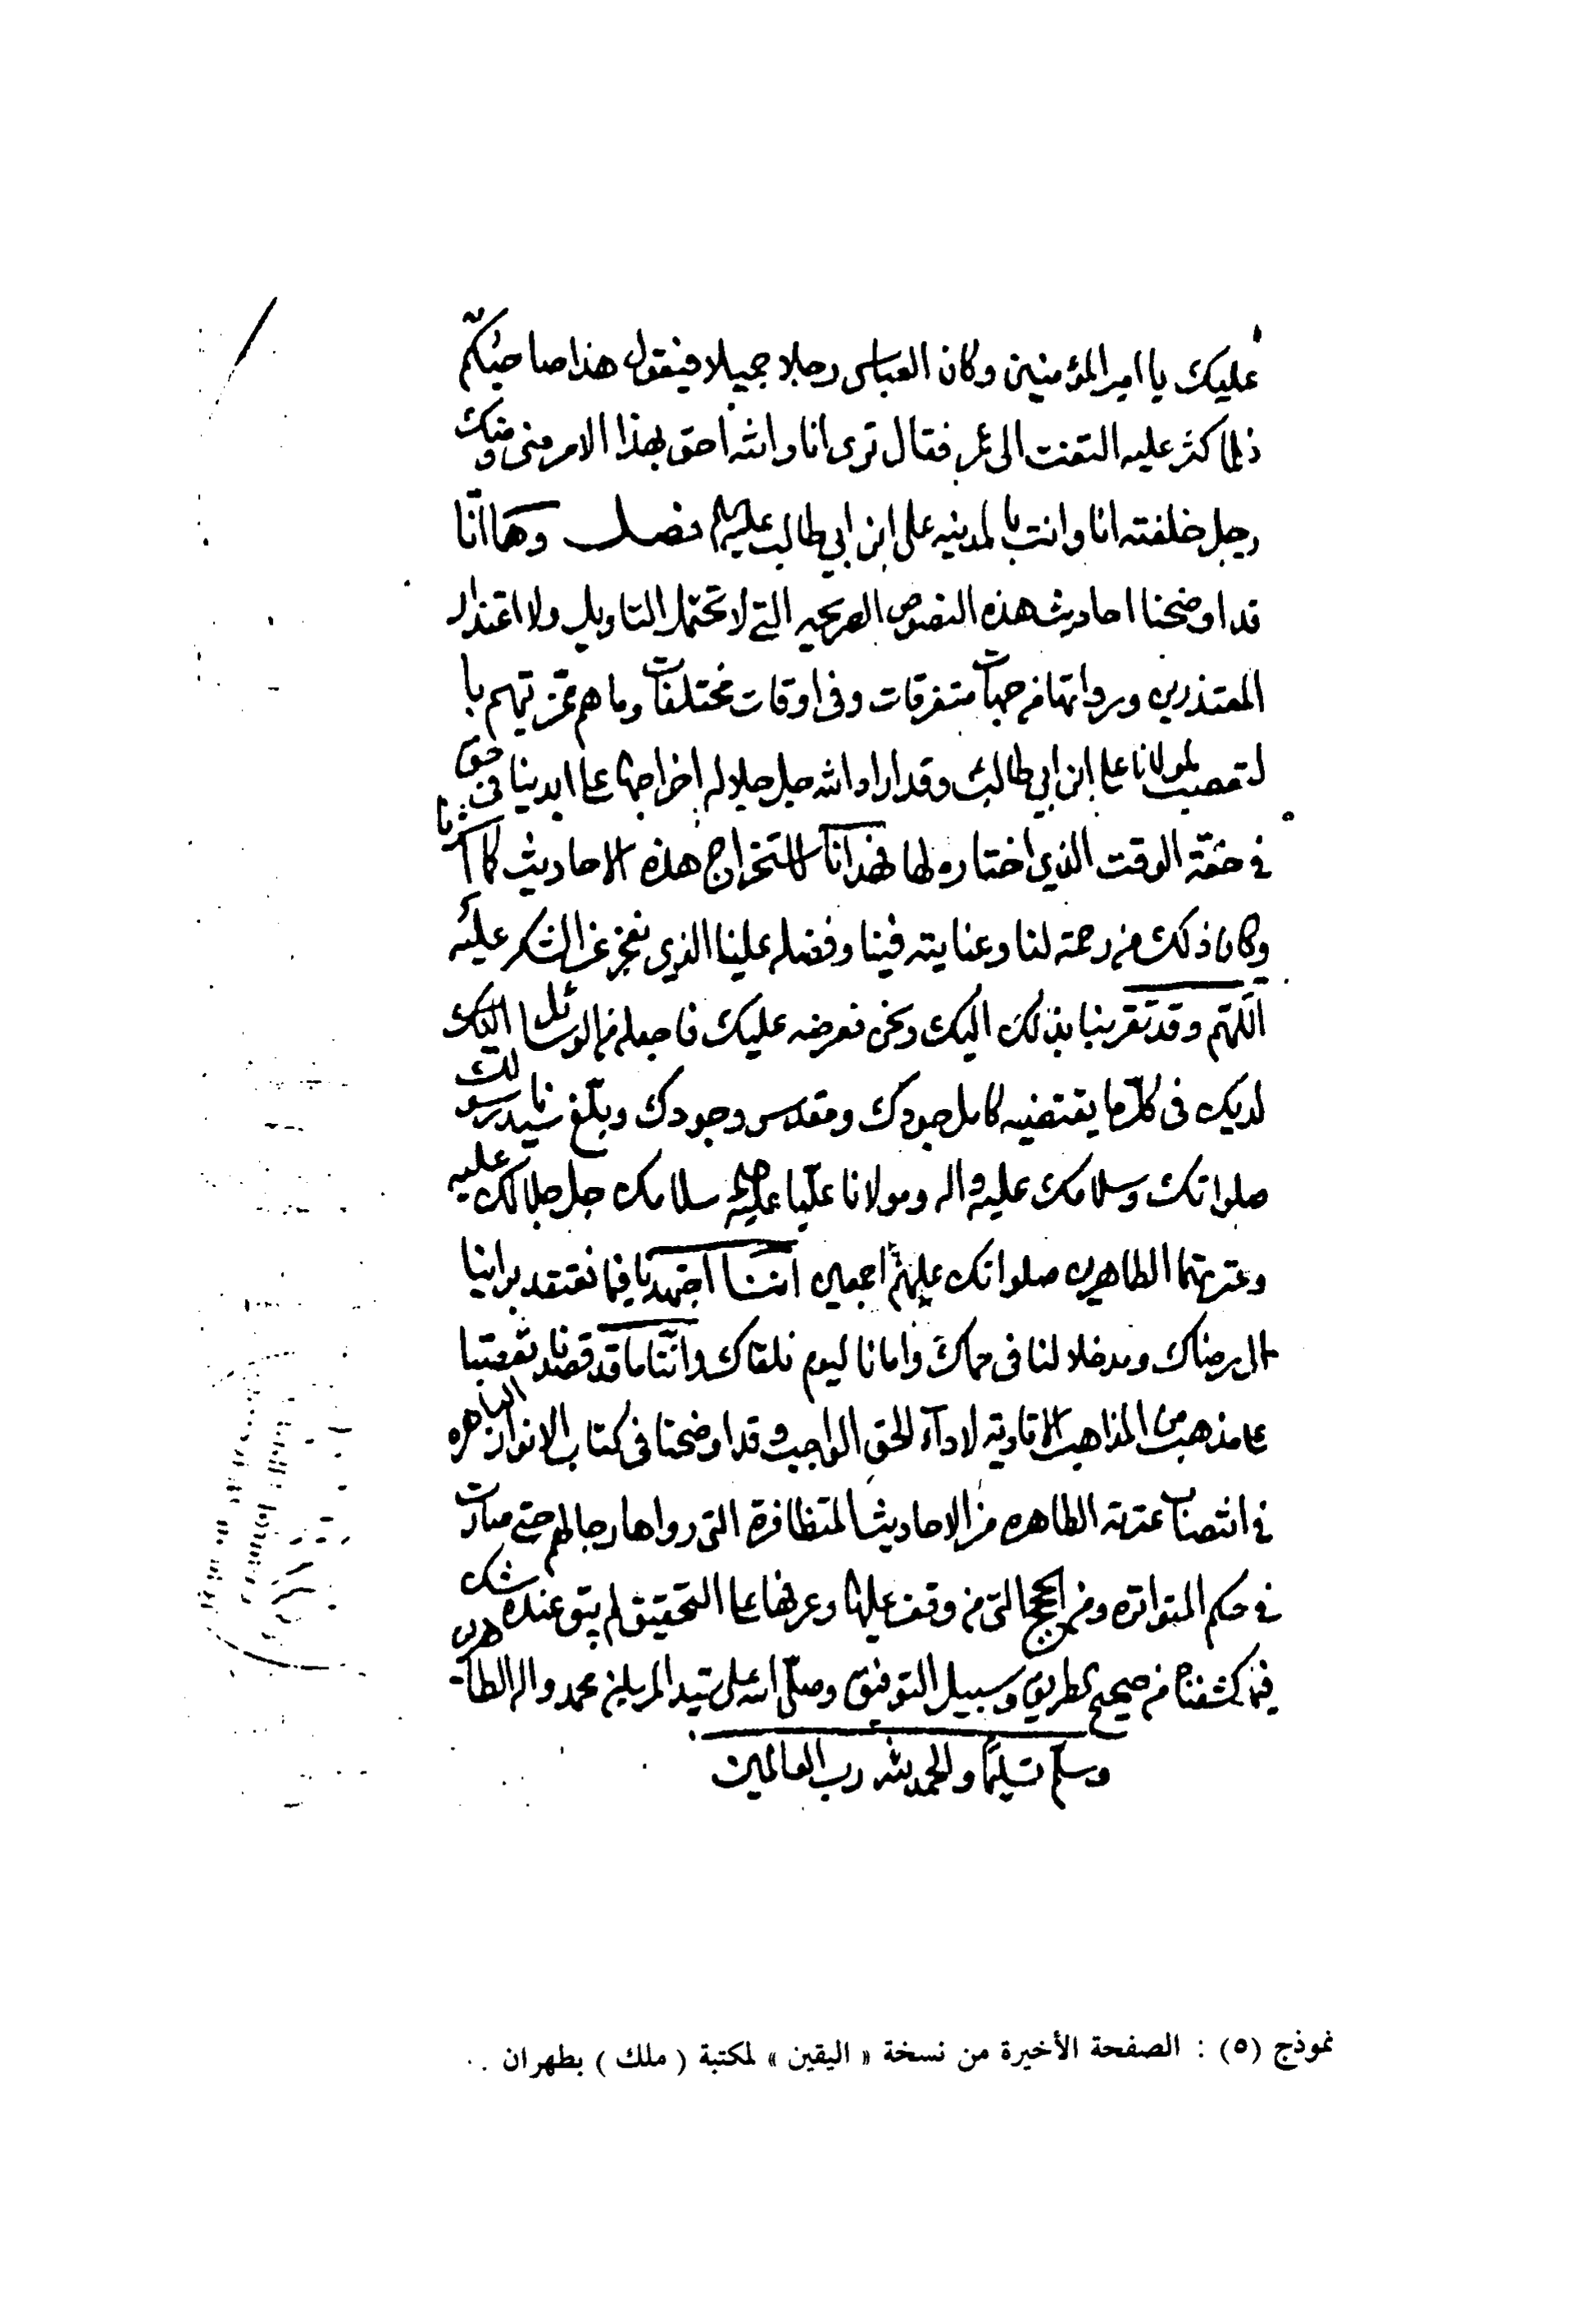 عليك يا امير المؤمنين وكان العباس رجلا جميلا فيقول هذا صاحبكم
فلما كثر عليه التفت الى عمر فقال ترى انا والله احق بهذا الامر منى ومنك
رجل خلفته انا وانت بالمدينه على ابن ابي طالب عليه فصل وها انا
قد اوضحنا احاديث هذه النصوص الصريحه التي لا تحتمل التاويل ولا اعتذار
المعتذرين ورواتها من جهات متفرقات وفى اوقات مختلفات وما هم ممن يتهم با
لتعصب لمولانا على ابن ابي طالب وقد اراد الله جل جلاله اخراجها على ايدينا فى حق
في الوقت الذي اختاره لها فهدانا لاستخراج هذه الاحاديث كما
وكان ذلك من رحمة لنا وعنايته فينا وفضله علينا الذي نعجز عن الشكر عليه
اللهم وقد تقربنا بذلك اليك ونحن نعرضه عليك فاجعله من الوسائل اليك
لديك فى كل ما يقتضيه كامل جودك ومقدس وجودك وبلغ سيدنا رسولك
صلواتك وسلامك عليه واله ومولانا عليا عليه سلامك جل جلالك عليه
وعترتهما الطاهرين صلواتك عليهم اجمعين اننا اجتهدنا فيما نعتقد براينا
الى رضاك ومدخلا لنا فى حماك وامانا ليوم نلقاك واننا ما قد قصدنا تعصبا
على مذهب من المذاهب لاداء الحق الواجب وقد اوضحنا فى كتاب الانوار الباهره
في انتصاب عترته الطاهره من الاحاديث المتظافرة التى رواها رجالهم حتى صارت
في حكم المتواتره ومن الحجج التى من وقف عليها وعرفها على التحقيق لم يبق عنده شك
فيما كشفناه من صحيح الطريق وسبيل التوفيق وصلى الله على سيد المرسلين محمد واله الطاهرين
وسلم تسليما والحمد لله رب العالمين
نموذج (٥) : الصفحة الأخيرة من نسخة « اليقين » لمكتبة ( ملك ) بطهران .